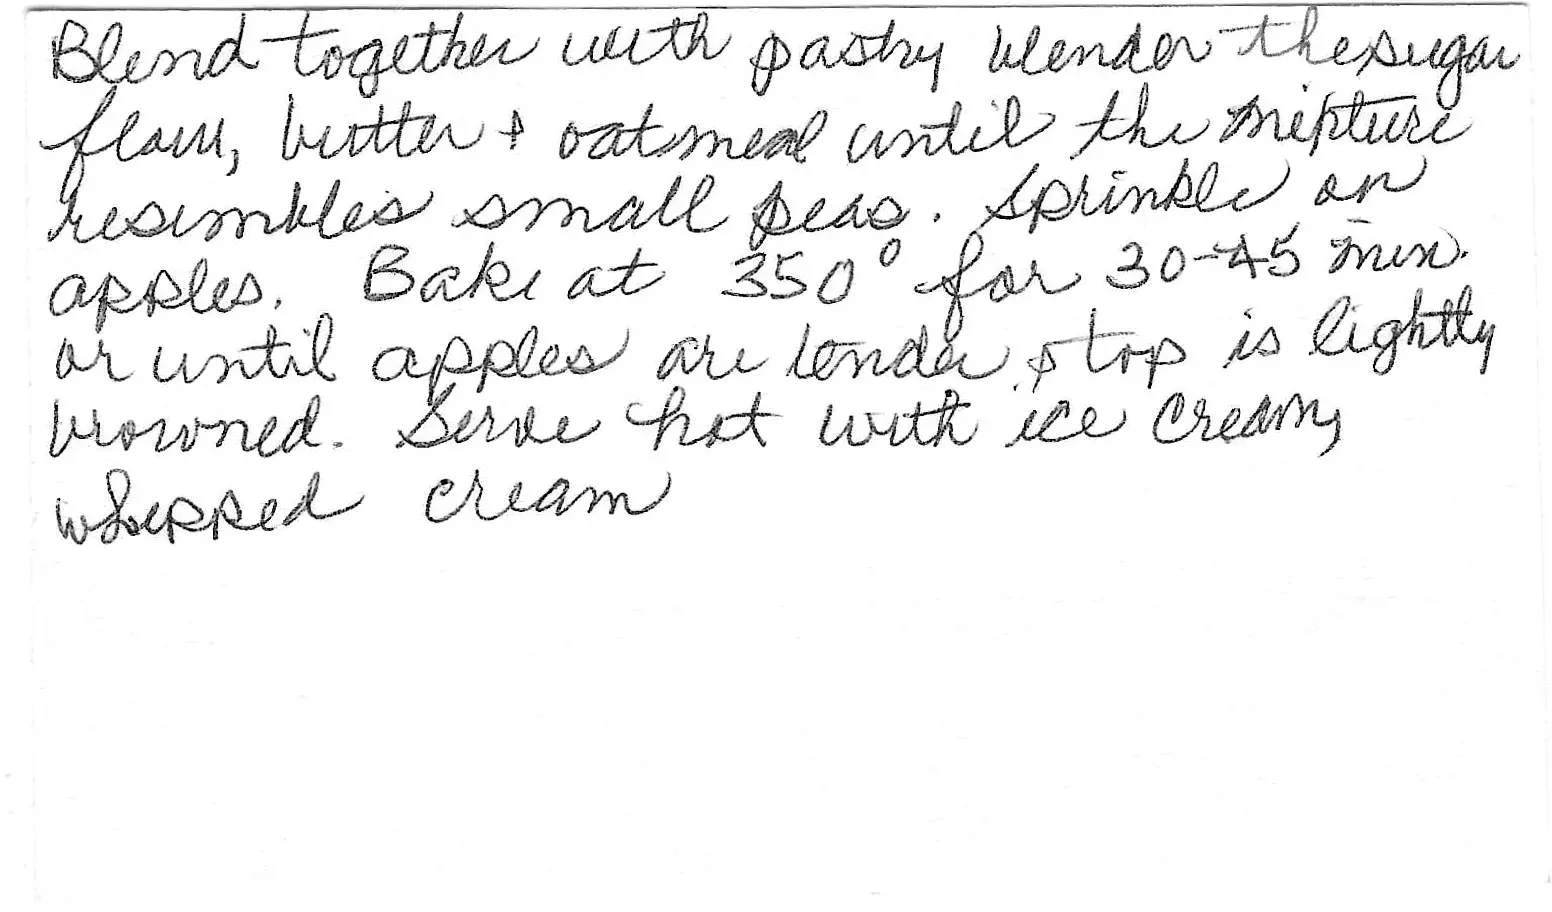 Blend together with pastry blender the sugar
flour, butter + oatmeal until the mixture
resembles small peas. Sprinkle on
apples. Bake at 350° for 30-45 min.
or until apples are tender & top is lightly
browned. Serve hot with ice cream,
whipped cream